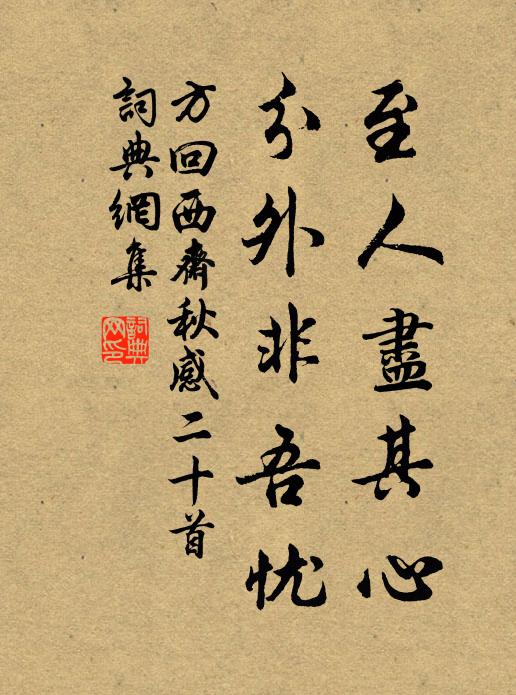 至人盡其心
分外非吾忧
方回西齋秋感二十首
詞典網集
詞典網印